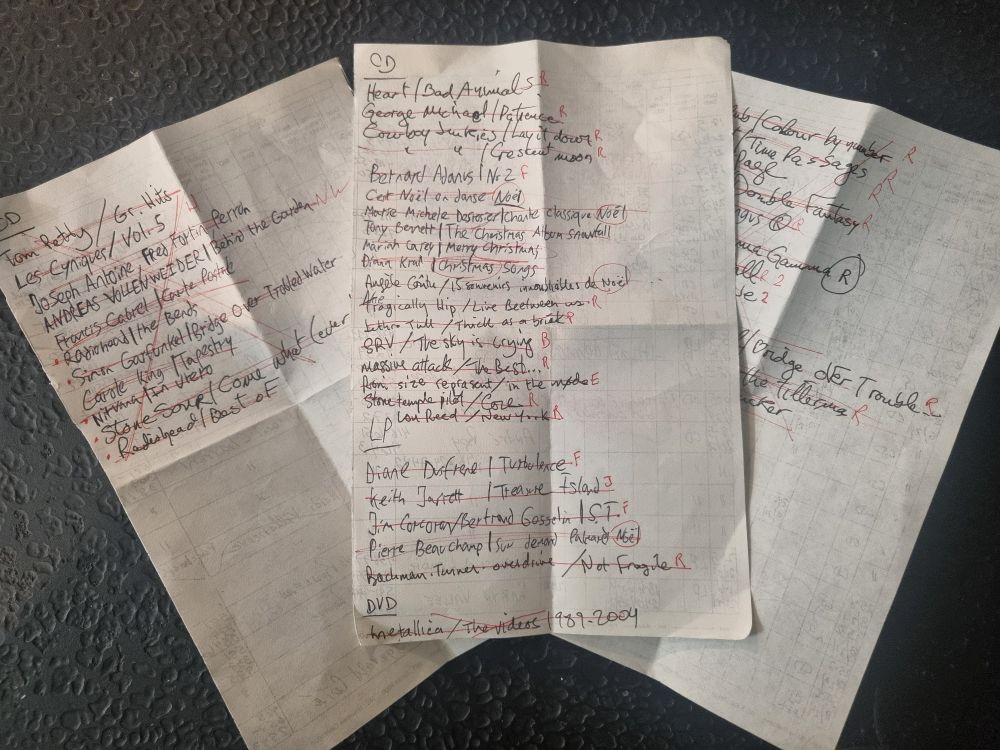 CD
Tom Petty / Gr. Hits
Les Cyniques / Vol. 5
Joseph Antoine Fred Fortin Perron
ANDREAS VOLLENWEIDER / Behind the Garden N/W
Francis Cabrel / Carte Postale
• Radiohead / the Bends
• Simon Garfunkel / Bridge Over Trobled Water
Carole King / Tapestry
• Nirvana / In Utero
• Stone Sour / Come what (ever
• Radiohead / Best of F
CD
Heart / Bad Animals R
George Michael / Patience R
Cowboy Junkies / Lay it down R
" " / Crescent moon R
Bernard Adamus / Nr 2 F
C'est Noël on danse Noël
Marie Michele Desrosier / Chante classique Noël
Tony Bennett / The Christmas Album Snowfall
Mariah Carey / Merry Christmas
Diana Kral / Christmas Songs
Angèle / 15 souvenirs inoubliables de Noël
Tragically Hip / Live Beetween us R
Jethro Tull / Thick as a brick R
SRV / The sky is crying B
massive attack / The Best... R
Roni size represent / in the mode E
Stone temple pilot / Core R
Lou Reed / New York R
LP
Diane Dufresne / Turbulence F
Keith Jarrett / Treasure Island J
Jim Corcoran / Bertrand Gosselin / S.T. F
Pierre Beauchamp / sur demand Noël
Bachman. Turner. overdrive / Not Fragile R
DVD
metallica / The videos 1989-2004
/ Colour by number R
/ Time Passages R
Page R
Double Fantasy R
R
Gamma R
2
2
/ bridge over Trouble R
the Tillerman R